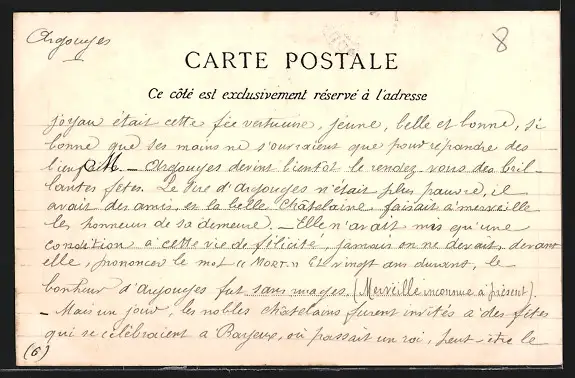 Argouges
8
CARTE POSTALE
Ce côté est exclusivement réservé à l'adresse
joyau était cette fée vertueuse, jeune, belle et bonne, si
bonne que ses mains ne s'ouvraient que pour répandre des
bienf M. — Argouges devint bientôt le rendez vous des bril-
lantes fêtes. Le Sire d'Argouges n'était plus pauvre, il
avait des amis, et la belle Châtelaine, faisait à merveille
les honneurs de sa demeure. — Elle n'avait mis qu'une
condition à cette vie de félicité, jamais on ne devait, devant
elle, prononcer le mot "MORT." Et vingt ans durant, le
bonheur d'Argouges fut sans nuages. (Merveille inconnue à présent).
— Mais un jour, les nobles châtelains furent invités à des fêtes
qui se célébraient à Bayeux, où passait un roi, peut-être le
(6)